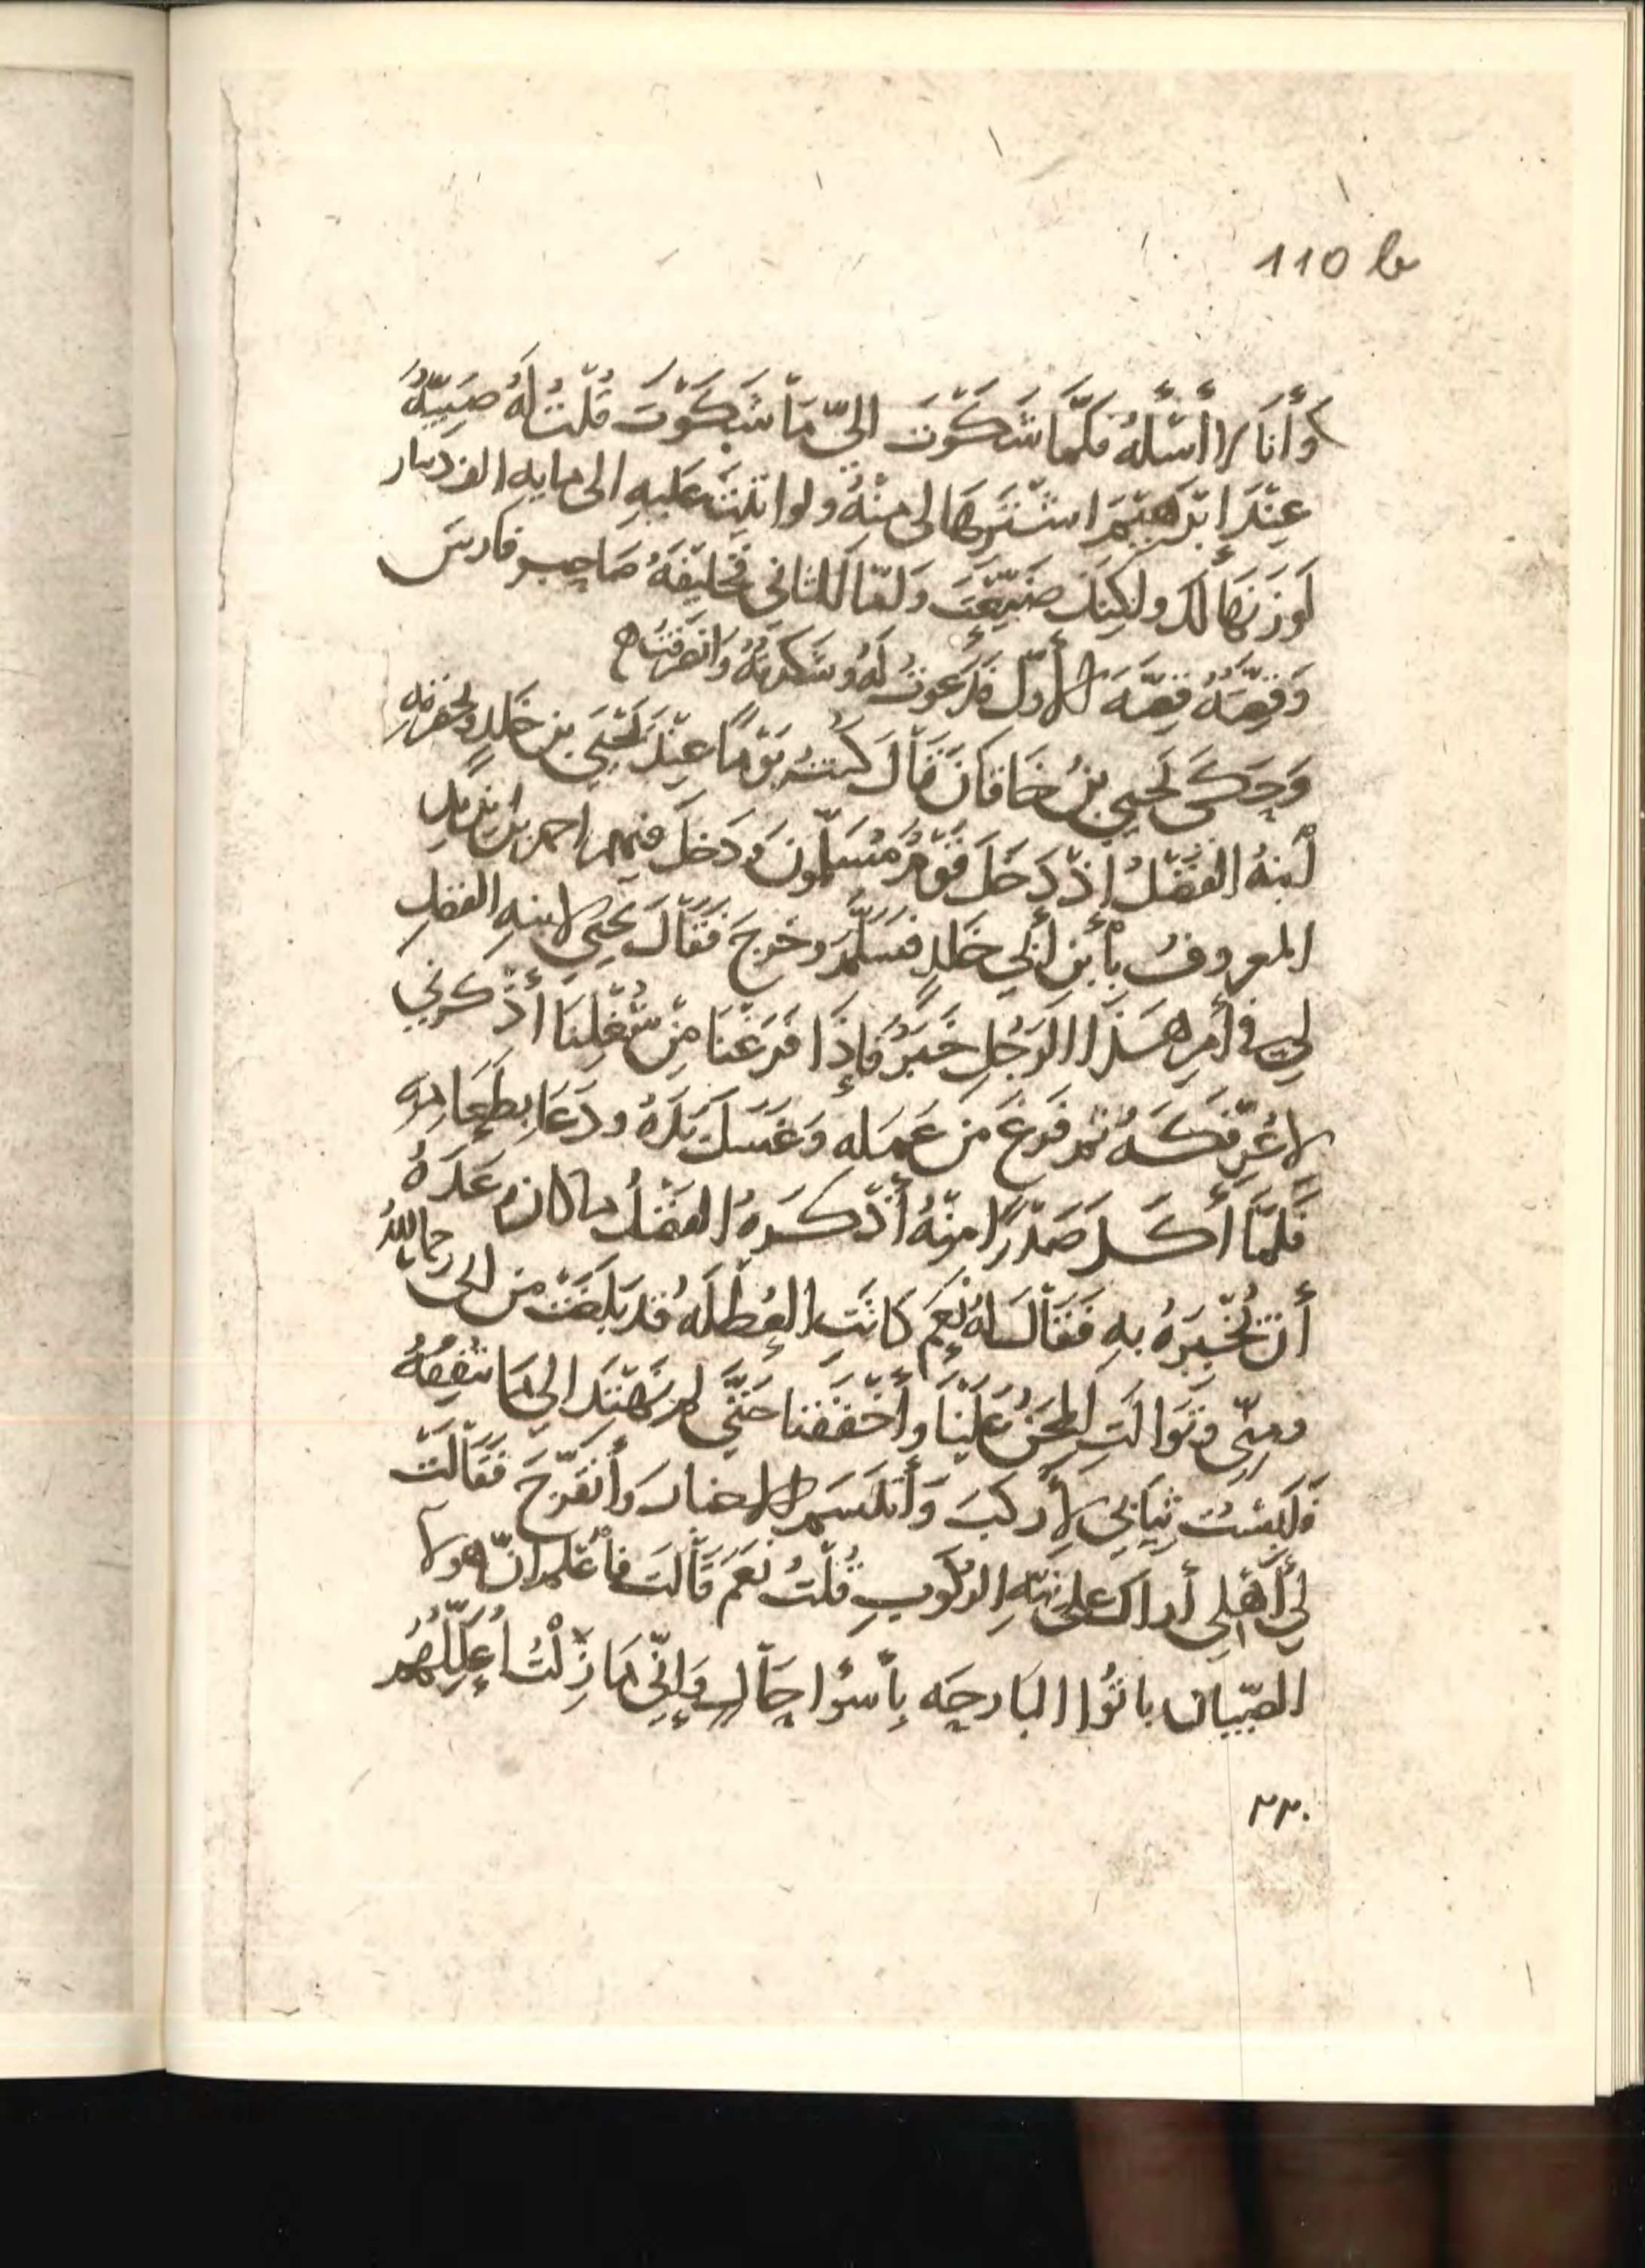 110 b
وَأَنَا لا أَسْأَلُهُ فَلَمَّا شَكَوْتَ إلىّ مَا شَكَوْتَ قُلْتُ لَهُ ضَيْعَةٌ
عِنْدَ إبْرَهِيْمَ اشتَرِهَا لى مِنْهُ ولو اتيت عَليهِ الى مايه الف دينار
لَوَزَنَهَا لك ولكِنك ضَيَّعْتَ ولقّا للثاني خَليفَةُ صَاحِب فارسَ
وَقِصَّتُهُ قِصَّهَ الأوّل فدَعَوتُ لهُ وشكرتُهُ وَانصَرَفتُ ه
وَحَكَى يَحيى بنُ خَاقَان قَاْلَ كُنتُ يَوْمًا عِنْدَ يَحْيَى بن خَلدٍ وبحضرته
أبنهُ الفَضْلُ إذْ دَخَلَ قَوْمٌ مُسَلّمونَ وَدَخلَ فيهم احمد بن يزيد
المعروفُ بأبن أبي خلدٍ فسَلَّمَ وخَرجَ فَقَاْلَ يحيى لابنهِ الفضلِ
لي في أمرِ هَذَا الرَجُلِ خَبَرٌ فإذَا فَرَغْنَا مِنْ شُغْلِنَا أذْكرني
لاعُرِّفكَهُ ثم فَرغَ من عَملهِ وَغَسَلَ يَدَهُ ودَعَا بِطَعَامِهِ
فَلَمَّا أكَل صَدْرًا مِنْهُ أذْكَرهُ الفضْلُ ما كان وعَدَهُ
أن يُخْبِرَهُ بهِ فَقَاْلَ لهُ نَعَم كَانَتِ العُطْلَهُ قد بَلَغَتْ من ابى رحمه اللهُ
ومنّى وتَوَالَتِ المِحَنُ عَلَيْنَا وأَخْفَقْنا حَتَّى لم نَهْتَدِ إلى مَا نُنْفِقُهُ
فَلَبِسْتُ ثيَابي لأركبَ وَأتَنَسَم الاخبار وأتفَرّجَ فَقَاْلَتْ
لي أَهْلِي أراك على نيّةِ الركوبِ قُلْتُ نَعَمْ قَاْلَت فأعْلَم انّ هولا
الصّبيان باتُوا البَارحَه بأَسْوَإ حَالٍ وَإنّى مَا زِلْتُ أُعَلِّلُهُم
٢٢٠